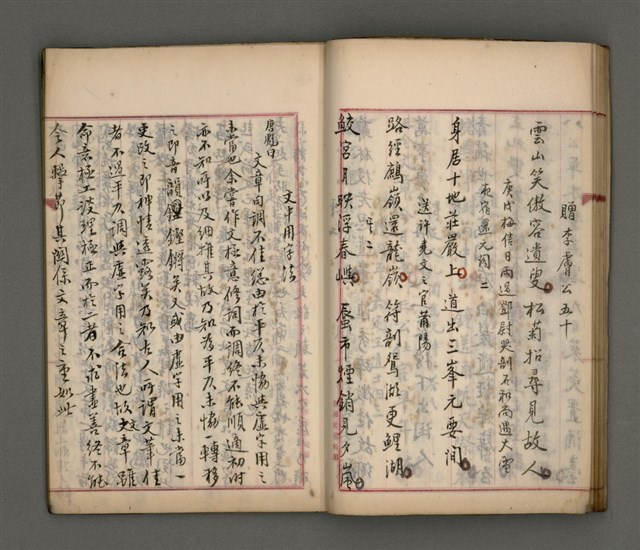 贈李膚公五十
雲山笑傲容遺叟 松菊招尋見故人
庚戌梅信日兩過鄧尉哭剖石和尚遇大雪
夜宿還元閣二
身居十地莊嚴上 道出三峯元要間
送許堯文之官莆陽
路經鶴嶺還龍嶺 符剖鴛湖更鯉湖
其二
鮫宮月映浮春嶼 蜃市煙銷見夕嵐
文中用字法
唐彪曰
文章句調不佳總由於平仄未協與虛字用之
未當也余嘗作文極意修詞而調終不能順適初時
亦不知所以及細推其故乃知為平仄未協一轉移
之即音韻鏗鏘矣又或由虛字用之未當一
更改之即神情透露矣乃知古人所謂文筆佳
者不過平仄調與虛字用之合法也故文章雖
命意極工設理極正而於二者不求盡善終不能
令人擊節其關係文章之重如此